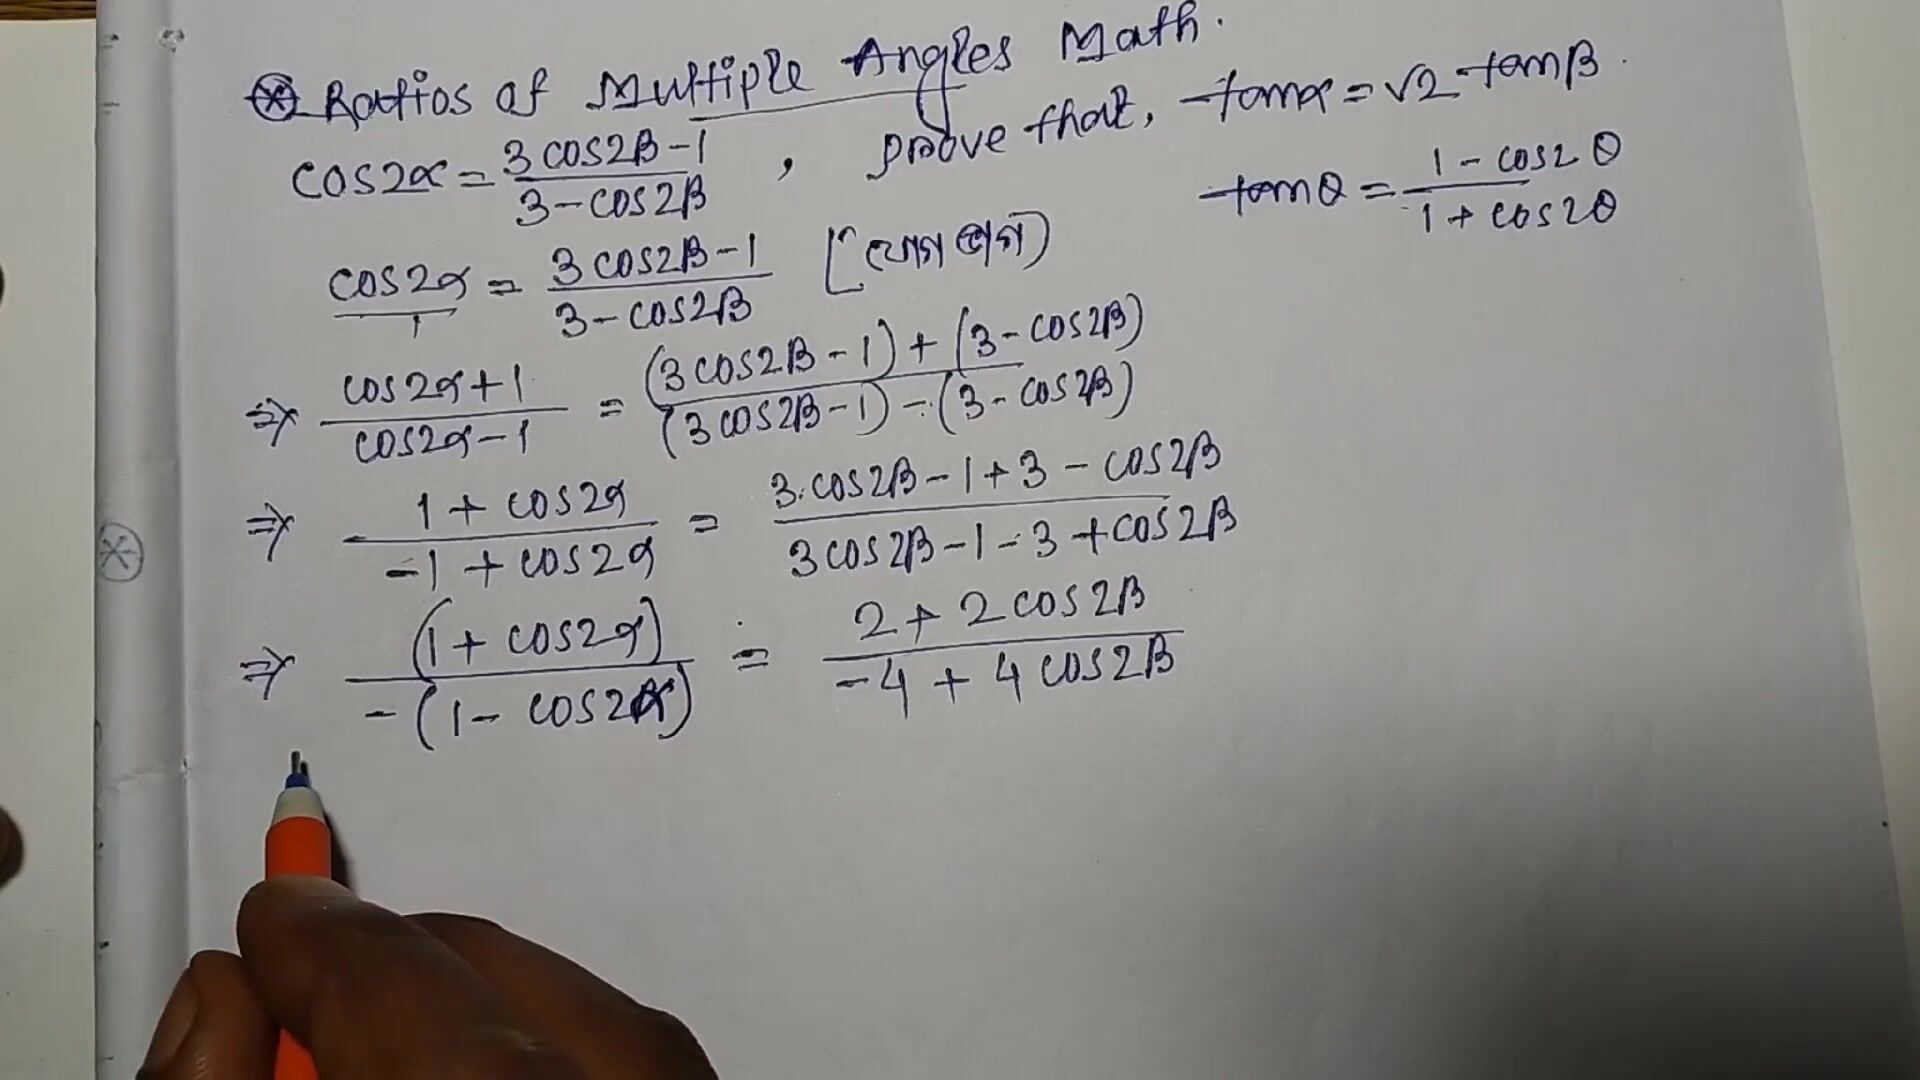 ⊛ Ratios of Multiple Angles Math.
cos2α = (3cos2β-1)/(3-cos2β) , prove that, tanα = √2 tanβ.
tanθ = (1-cos2θ)/(1+cos2θ)
cos2α/1 = (3cos2β-1)/(3-cos2β)
⇒ (cos2α+1)/(cos2α-1) = ((3cos2β-1)+(3-cos2β))/((3cos2β-1)-(3-cos2β))
⇒ (1+cos2α)/(-1+cos2α) = (3.cos2β-1+3-cos2β)/(3cos2β-1-3+cos2β)
⇒ (1+cos2α)/-(1-cos2α) = (2+2cos2β)/(-4+4cos2β)